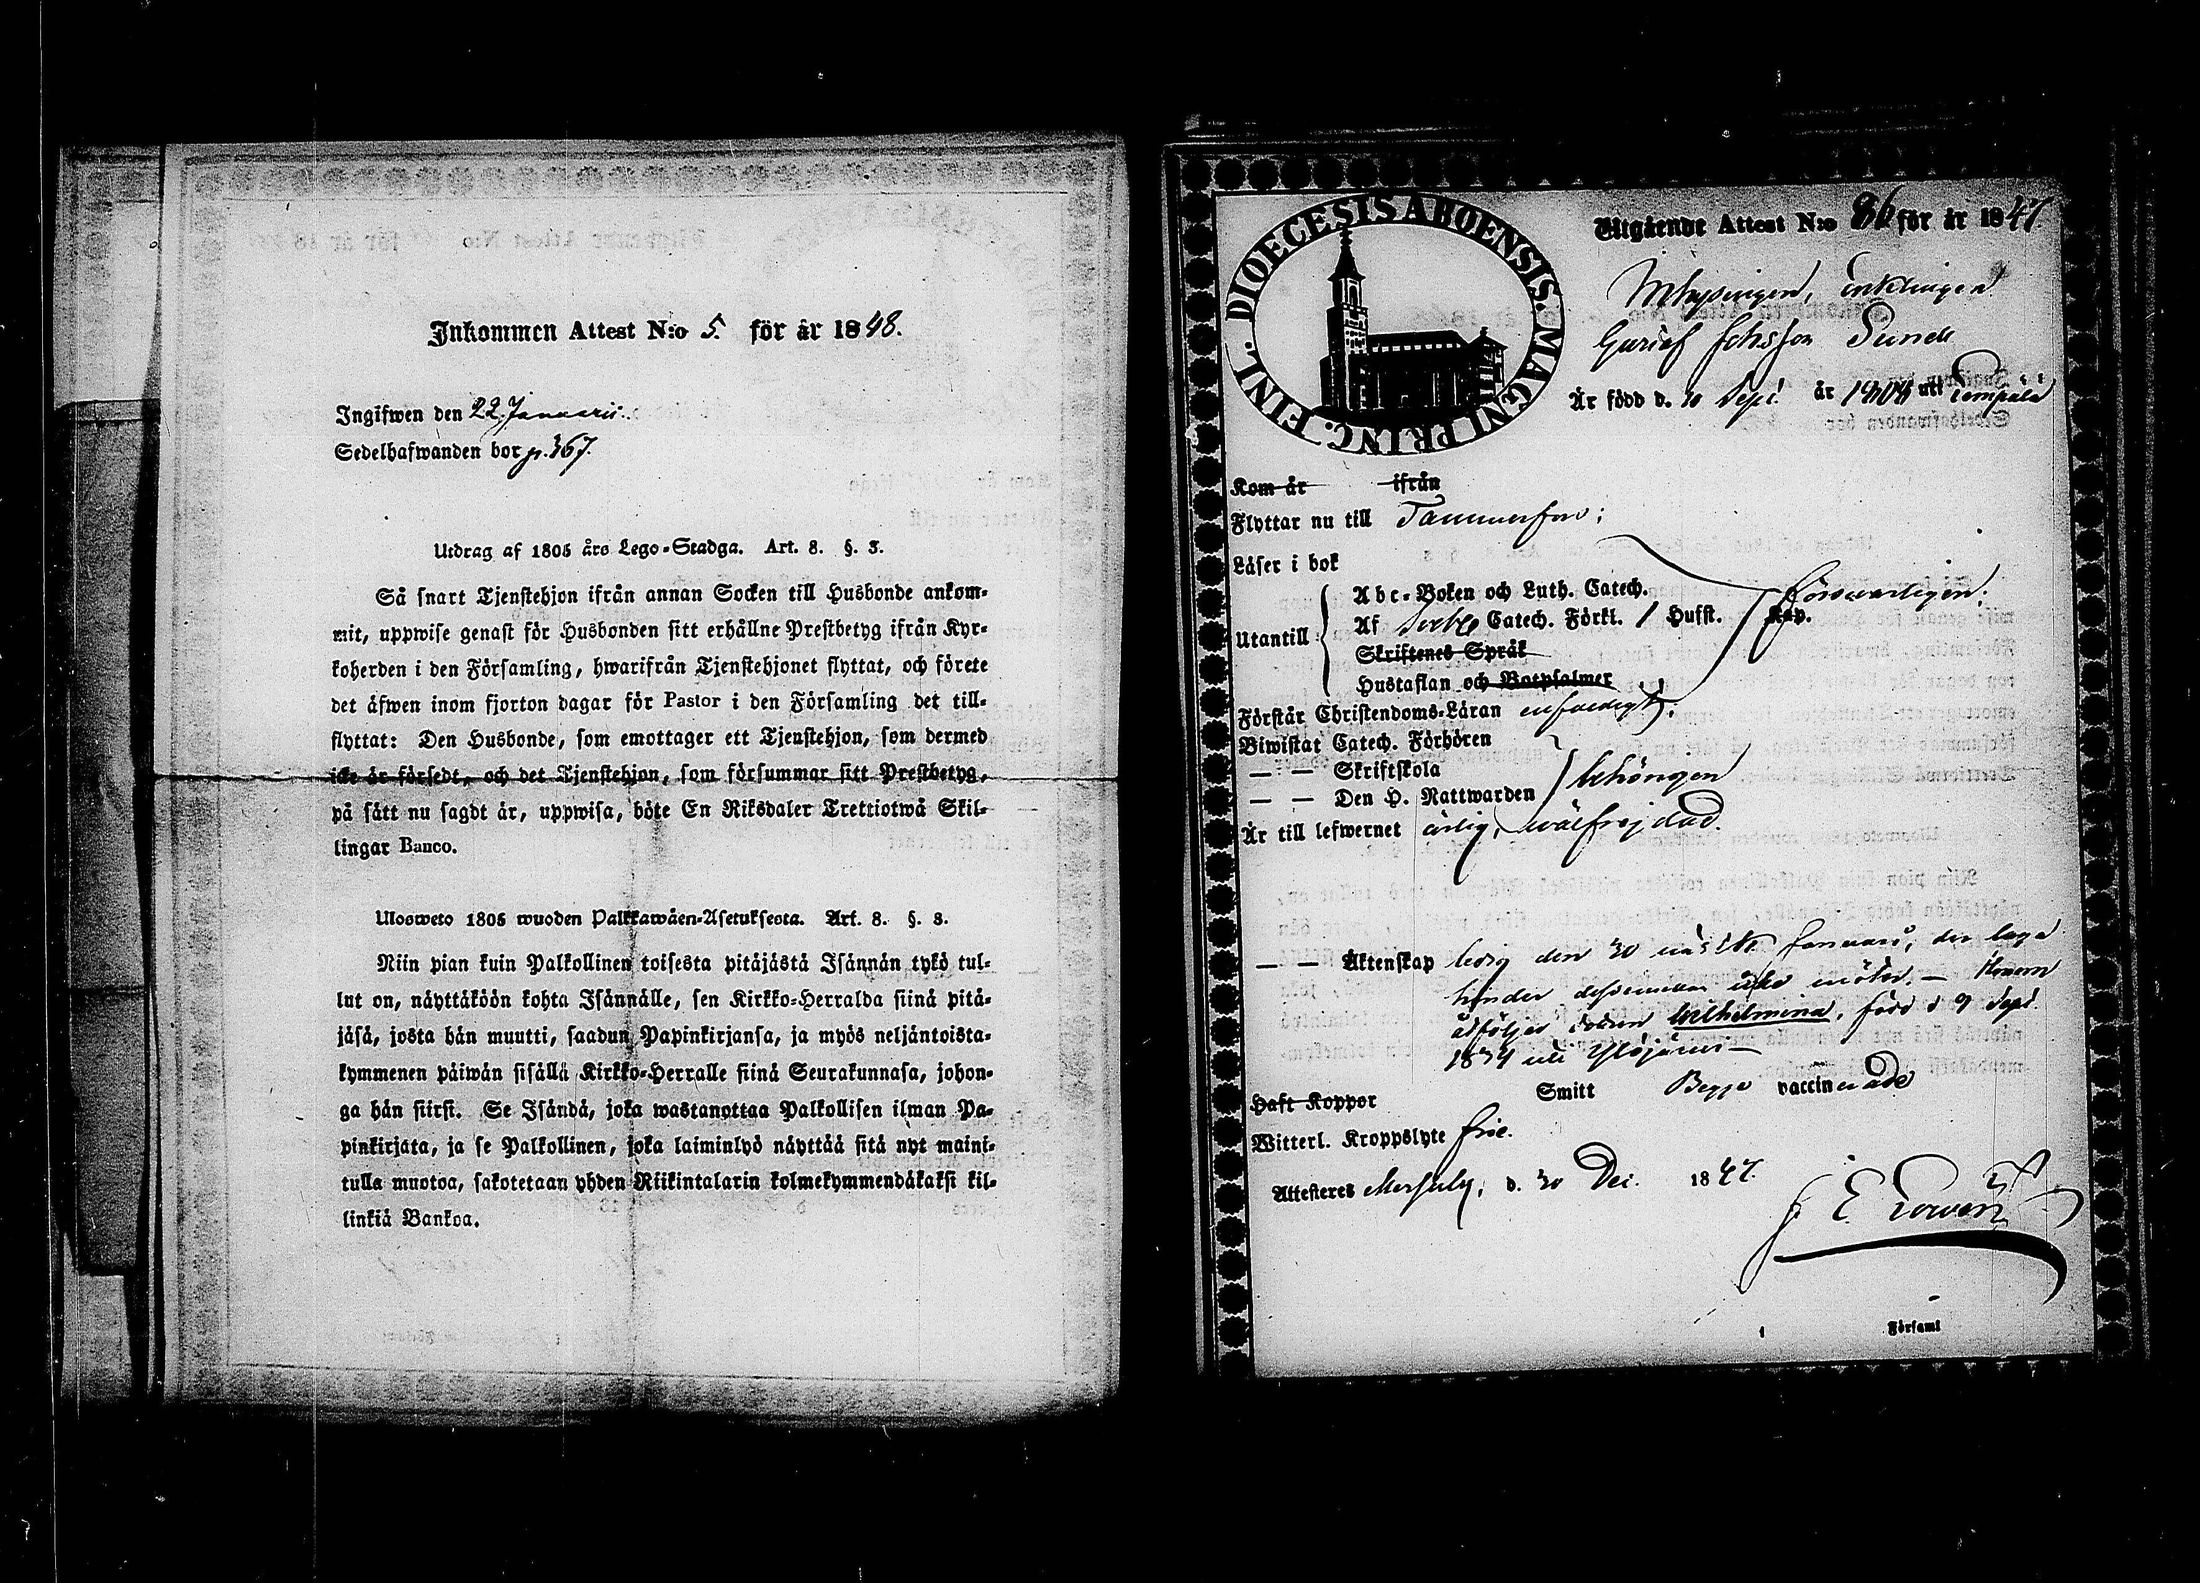 Inkommen Attest N:o 5. för år 1848.
Ingifwen den 22. Januarii.
Sedelhafwanden bor p. 367.
Utdrag af 1805 års Lego-Stadga. Art. 8. §. 3.
Så snart Tjenstehjon ifrån annan Socken till Husbonde ankom-
mit, uppwise genast för Husbonden sitt erhållne Prestbetyg ifrån Kyr-
koherden i den Församling, hwarifrån Tjenstehjonet flyttat, och förete
det äfwen inom fjorton dagar för Pastor i den Församling det till-
flyttat: Den Husbonde, som emottager ett Tjenstehjon, som dermed
icke är försedt, och det Tjenstehjon, som försummar sitt Prestbetyg,
på sätt nu sagdt är, uppwisa, böte En Riksdaler Trettiotwå Skil-
lingar Banco.
Ulosweto 1805 wuoden Palkkawäen-Asetuksesta. Art. 8. §. 3.
Niin pian kuin Palkollinen toisesta pitäjästä Isännän tykö tul-
lut on, näyttäköön kohta Isännälle, sen Kirkko-Herralda siinä pitä-
jäsä, josta hän muutti, saadun Papinkirjansa, ja myös neljäntoista-
kymmenen päiwän sisällä Kirkko-Herralle siinä Seurakunnasa, johon-
ga hän siirsi. Se Isändä, joka wastanottaa Palkollisen ilman Pa-
pinkirjata, ja se Palkollinen, joka laiminlyö näyttää sitä nyt maini-
tulla muotoa, sakotetaan yhden Riikintalarin kolmekymmendäkaksi kil-
linkiä Bankoa.
DIOECESIS ABOENSIS. MAGNI PRINC. FINL.
Utgående Attest N:o 86 för år 1847.
Inhysingen, Enklingen
Gustaf Johsson Sund
Är född d. 10 Sept år 1804 uti Lempälä
Kom år ifrån
Flyttar nu till Tammerfors;
Läser i bok
Utantill
Abc-Boken och Luth. Catech.
Af Catech. Förkl. / Hufst. Kap. förswarligen;
Skriftenes Språk
Hustaflan och Botpsalmer
Förstår Christendoms-Läran enfaldigt;
Biwistat Catech. Förhören
— — Skriftskola
— — Den H. Nattwarden behörigen
Är till lefwernet ärlig, wälfrejdad.
— — Äktenskap ledig den 30 nästk. Januari, der laga
hinder dessemellan icke möter. — Honom
åtföljer dottren Wilhelmina, född d 9 Sept
1834 uti Ylöjärvi —
Haft Koppor Smitt Begge vaccinerade
Witterl. Kroppslyte frie.
Attesteres Messuby, d. 30 Dec. 1847.
J. E.
1
Församl